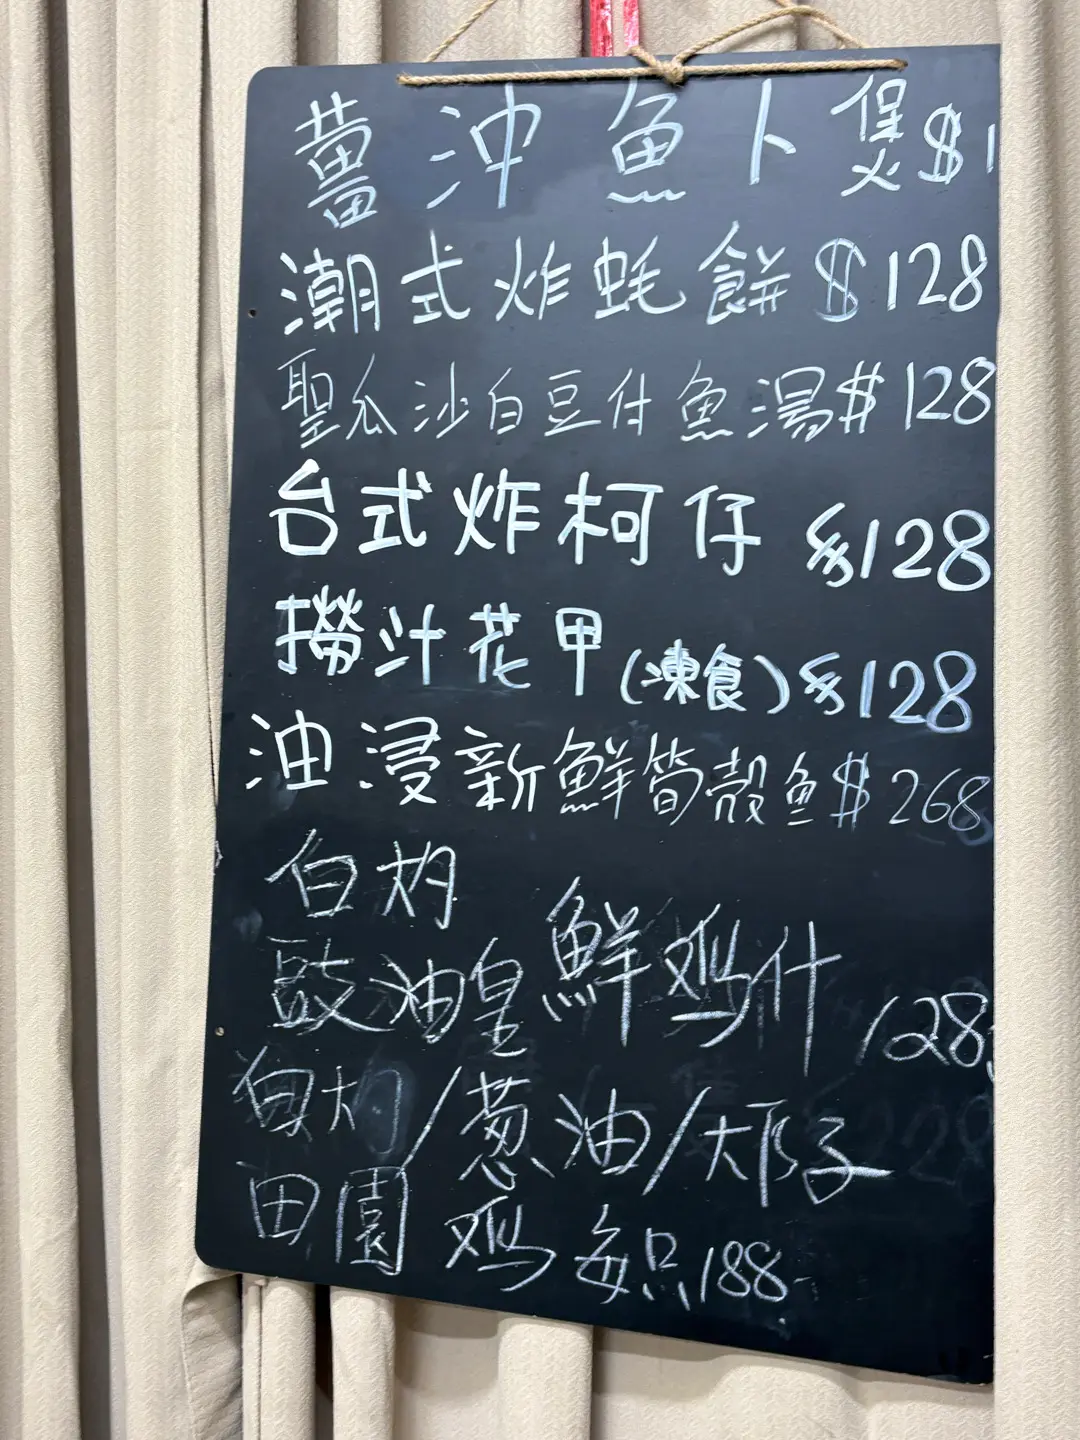 薑沖魚卜煲$1
潮式炸蚝餅$128
聖瓜沙白豆付魚湯$128
台式炸柯仔$128
撈汁花甲(凍食)$128
油浸新鮮筍殼魚$268
白灼
豉油皇 鮮鸡什 128
白灼/葱油/大阝子
田園鸡每只188